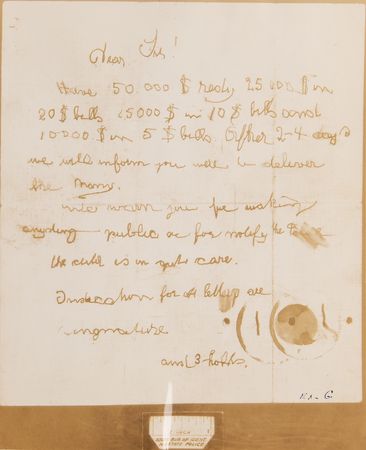 Dear Sir!
Have 50.000 $ redy 25 000 $ in
20 $ bills 15000 $ in 10 $ bills and
10000 $ in 5 $ bills. After 2-4 days
we will inform you were to deliver
the Mony.
We warn you for making
anyding public or for notify the
the child is in gut care.
Indication for all letters are
singnature
and 3 holds.